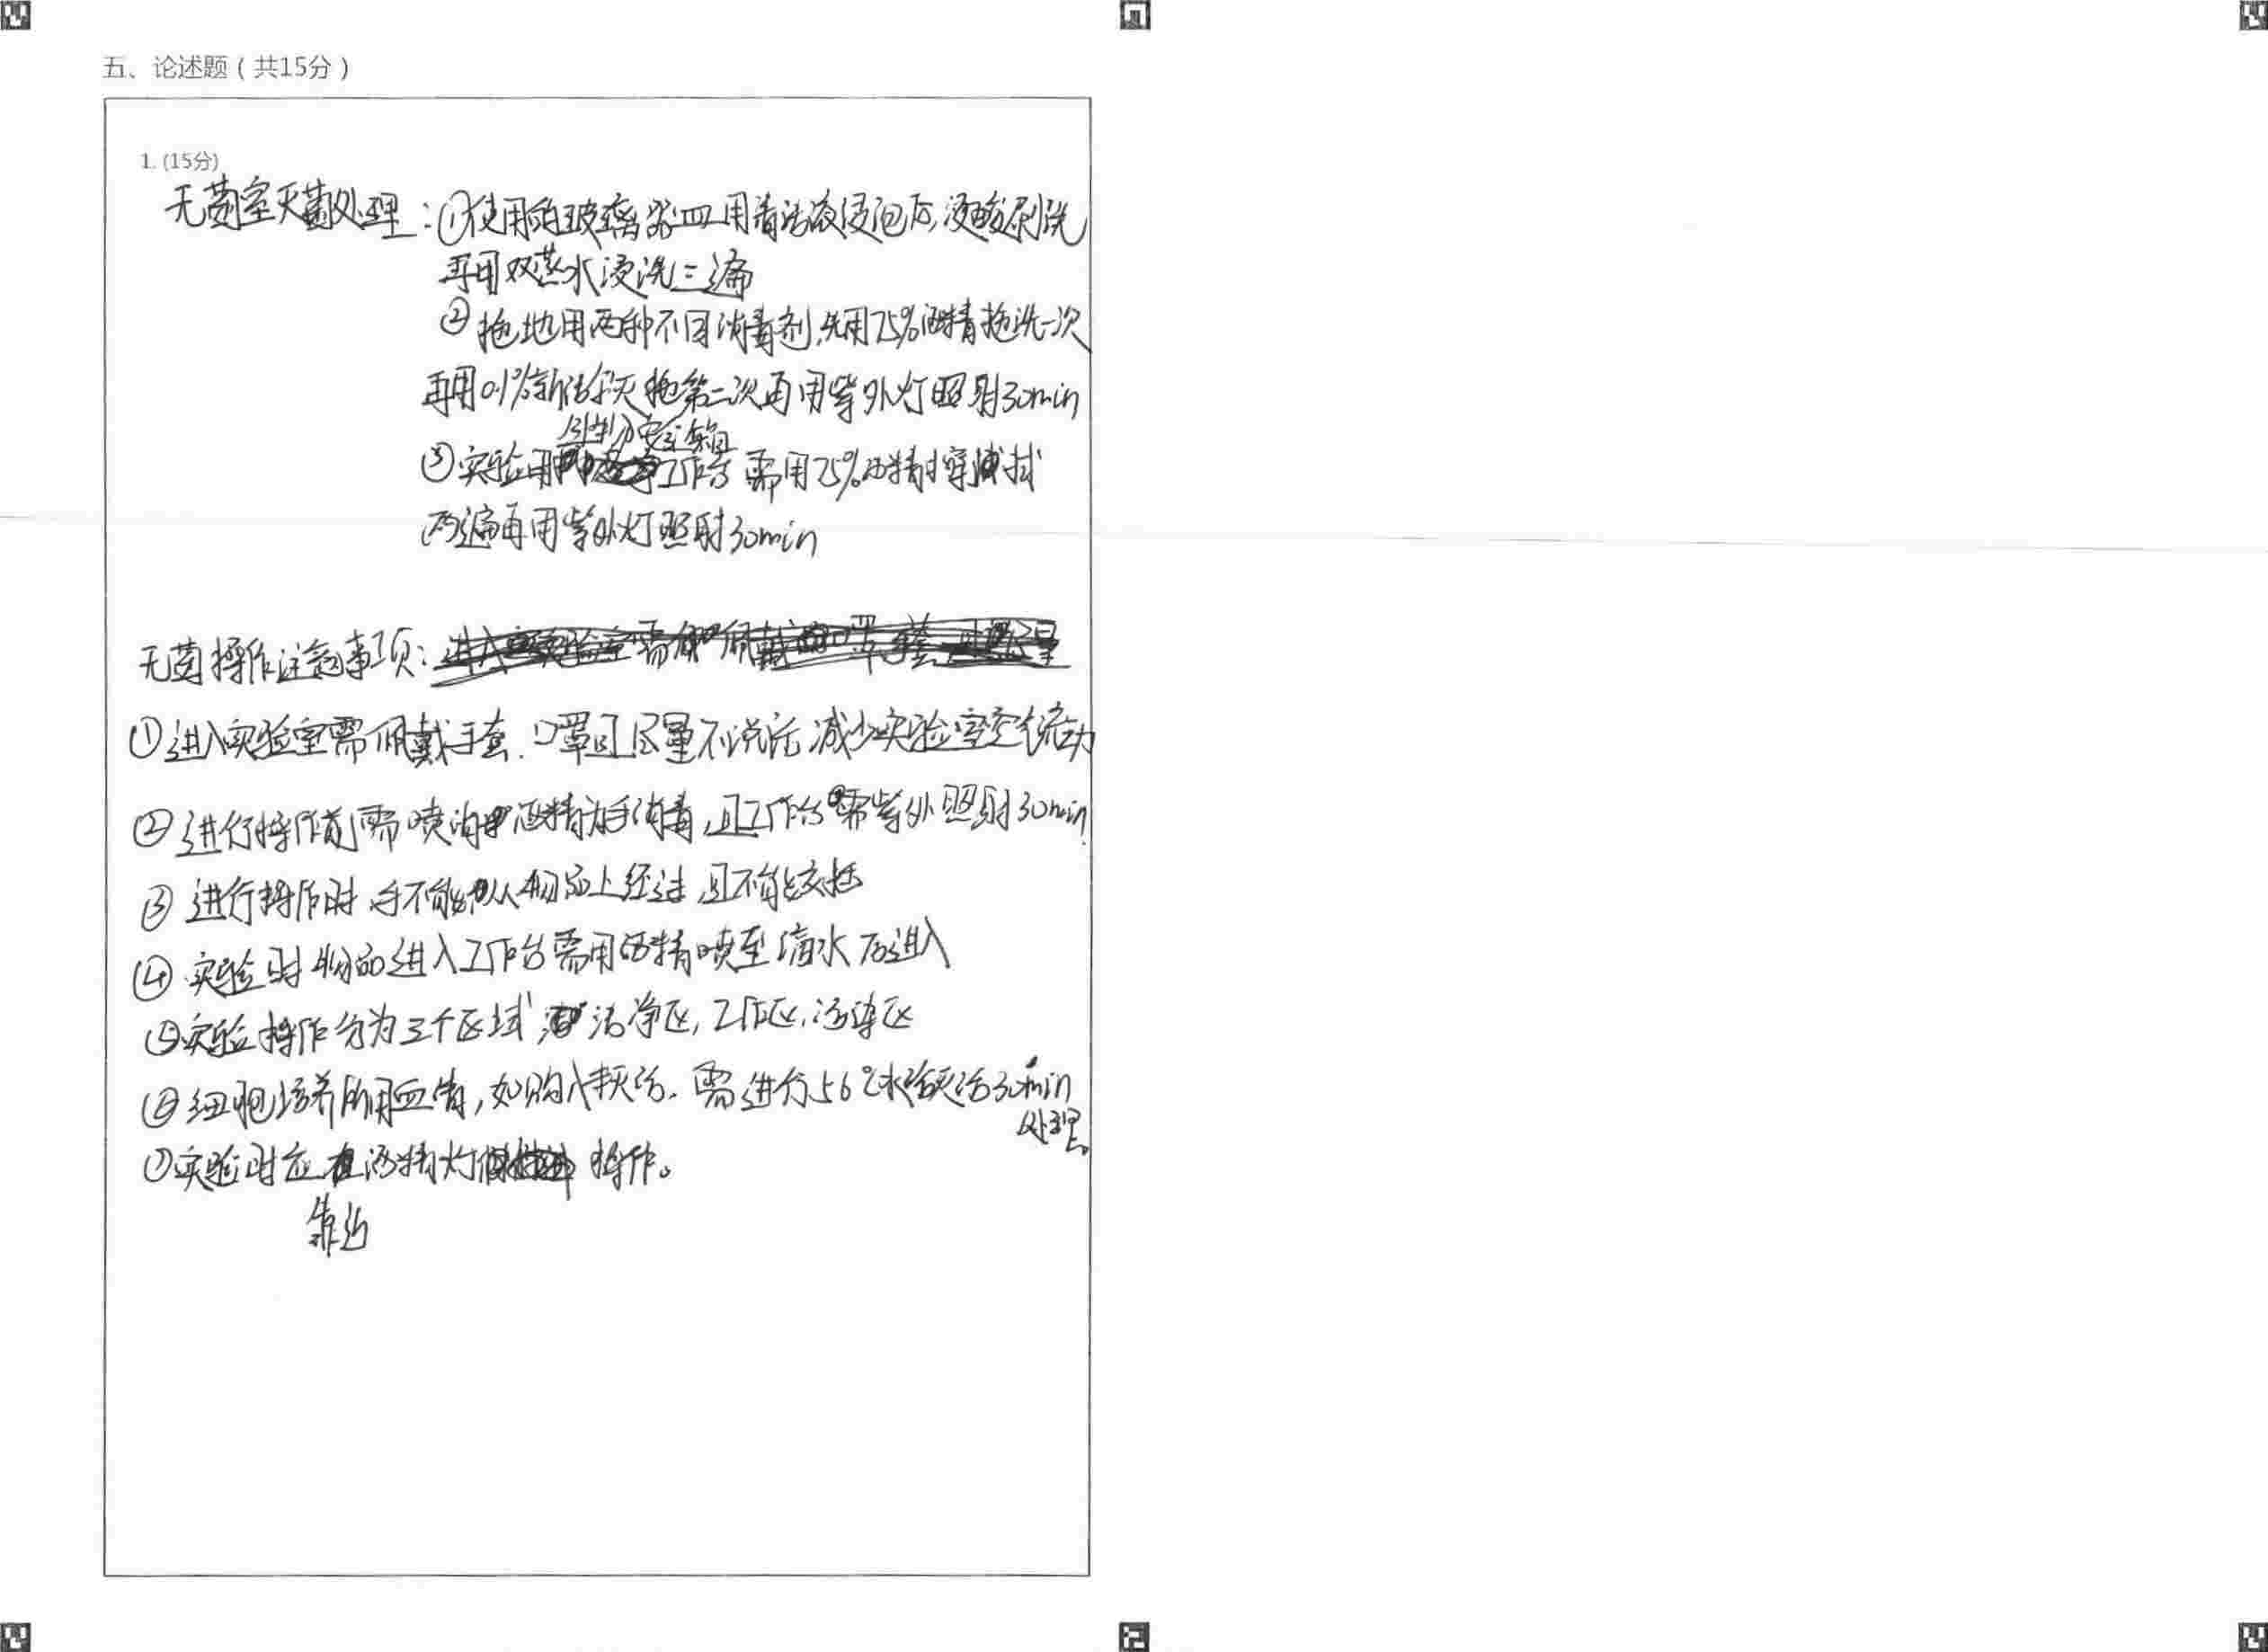 五、论述题（共15分）
1. (15分)
无菌室灭菌处理：①使用的玻璃器皿用清洁液浸泡后,浸酸刷洗
再用双蒸水浸洗三遍
②拖地用两种不同消毒剂,先用75%酒精拖洗一次
再用0.1%新洁尔灭拖第二次再用紫外灯照射30min
③实验用 工作台需用75%酒精擦拭
两遍再用紫外灯照射30min
无菌操作注意事项：
①进入实验室需佩戴手套.口罩且尽量不说话 减少实验室空气流动
②进行操作前需喷洒酒精为手消毒,且工作台需紫外照射30min.
③进行操作时,手不能从物品上经过,且不能交
④实验时物品进入工作台需用酒精喷至滴水后进入
⑤实验操作分为三个区域 洁净区,工作区,污染区
⑥细胞培养所用血清,如购入未灭活.需进行56℃水浴灭活30min
处理。
⑦实验时应 酒精灯 操作。
靠近